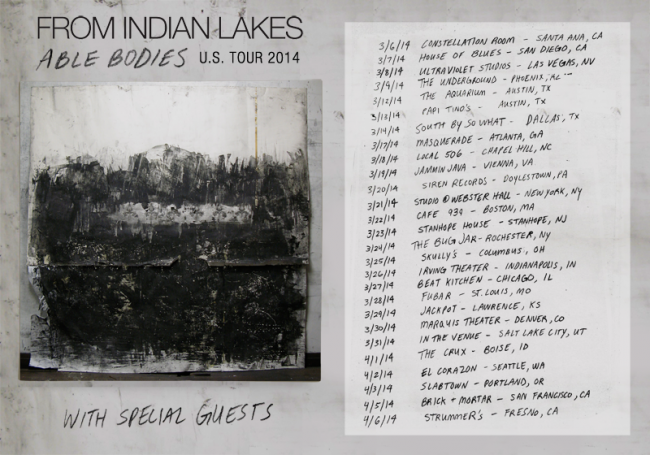 FROM INDIAN LAKES
ABLE BODIES U.S. TOUR 2014
WITH SPECIAL GUESTS
3/6/14 CONSTELLATION ROOM - SANTA ANA, CA
3/7/14 HOUSE OF BLUES - SAN DIEGO, CA
3/8/14 ULTRAVIOLET STUDIOS - LAS VEGAS, NV
3/9/14 THE UNDERGROUND - PHOENIX, AZ
3/12/14 THE AQUARIUM - AUSTIN, TX
3/13/14 PAPI TINO'S - AUSTIN, TX
3/14/14 SOUTH BY SO WHAT - DALLAS, TX
3/17/14 MASQUERADE - ATLANTA, GA
3/18/14 LOCAL 506 - CHAPEL HILL, NC
3/19/14 JAMMIN JAVA - VIENNA, VA
3/20/14 SIREN RECORDS - DOYLESTOWN, PA
3/21/14 STUDIO @ WEBSTER HALL - NEW YORK, NY
3/22/14 CAFE 939 - BOSTON, MA
3/23/14 STANHOPE HOUSE - STANHOPE, NJ
3/24/14 THE BUG JAR - ROCHESTER, NY
3/25/14 SKULLY'S - COLUMBUS, OH
3/26/14 IRVING THEATER - INDIANAPOLIS, IN
3/27/14 BEAT KITCHEN - CHICAGO, IL
3/28/14 FUBAR - ST. LOUIS, MO
3/29/14 JACKPOT - LAWRENCE, KS
3/30/14 MARQUIS THEATER - DENVER, CO
3/31/14 IN THE VENUE - SALT LAKE CITY, UT
4/1/14 THE CRUX - BOISE, ID
4/2/14 EL CORAZON - SEATTLE, WA
4/3/14 SLABTOWN - PORTLAND, OR
4/5/14 BRICK + MORTAR - SAN FRANCISCO, CA
4/6/14 STRUMMER'S - FRESNO, CA